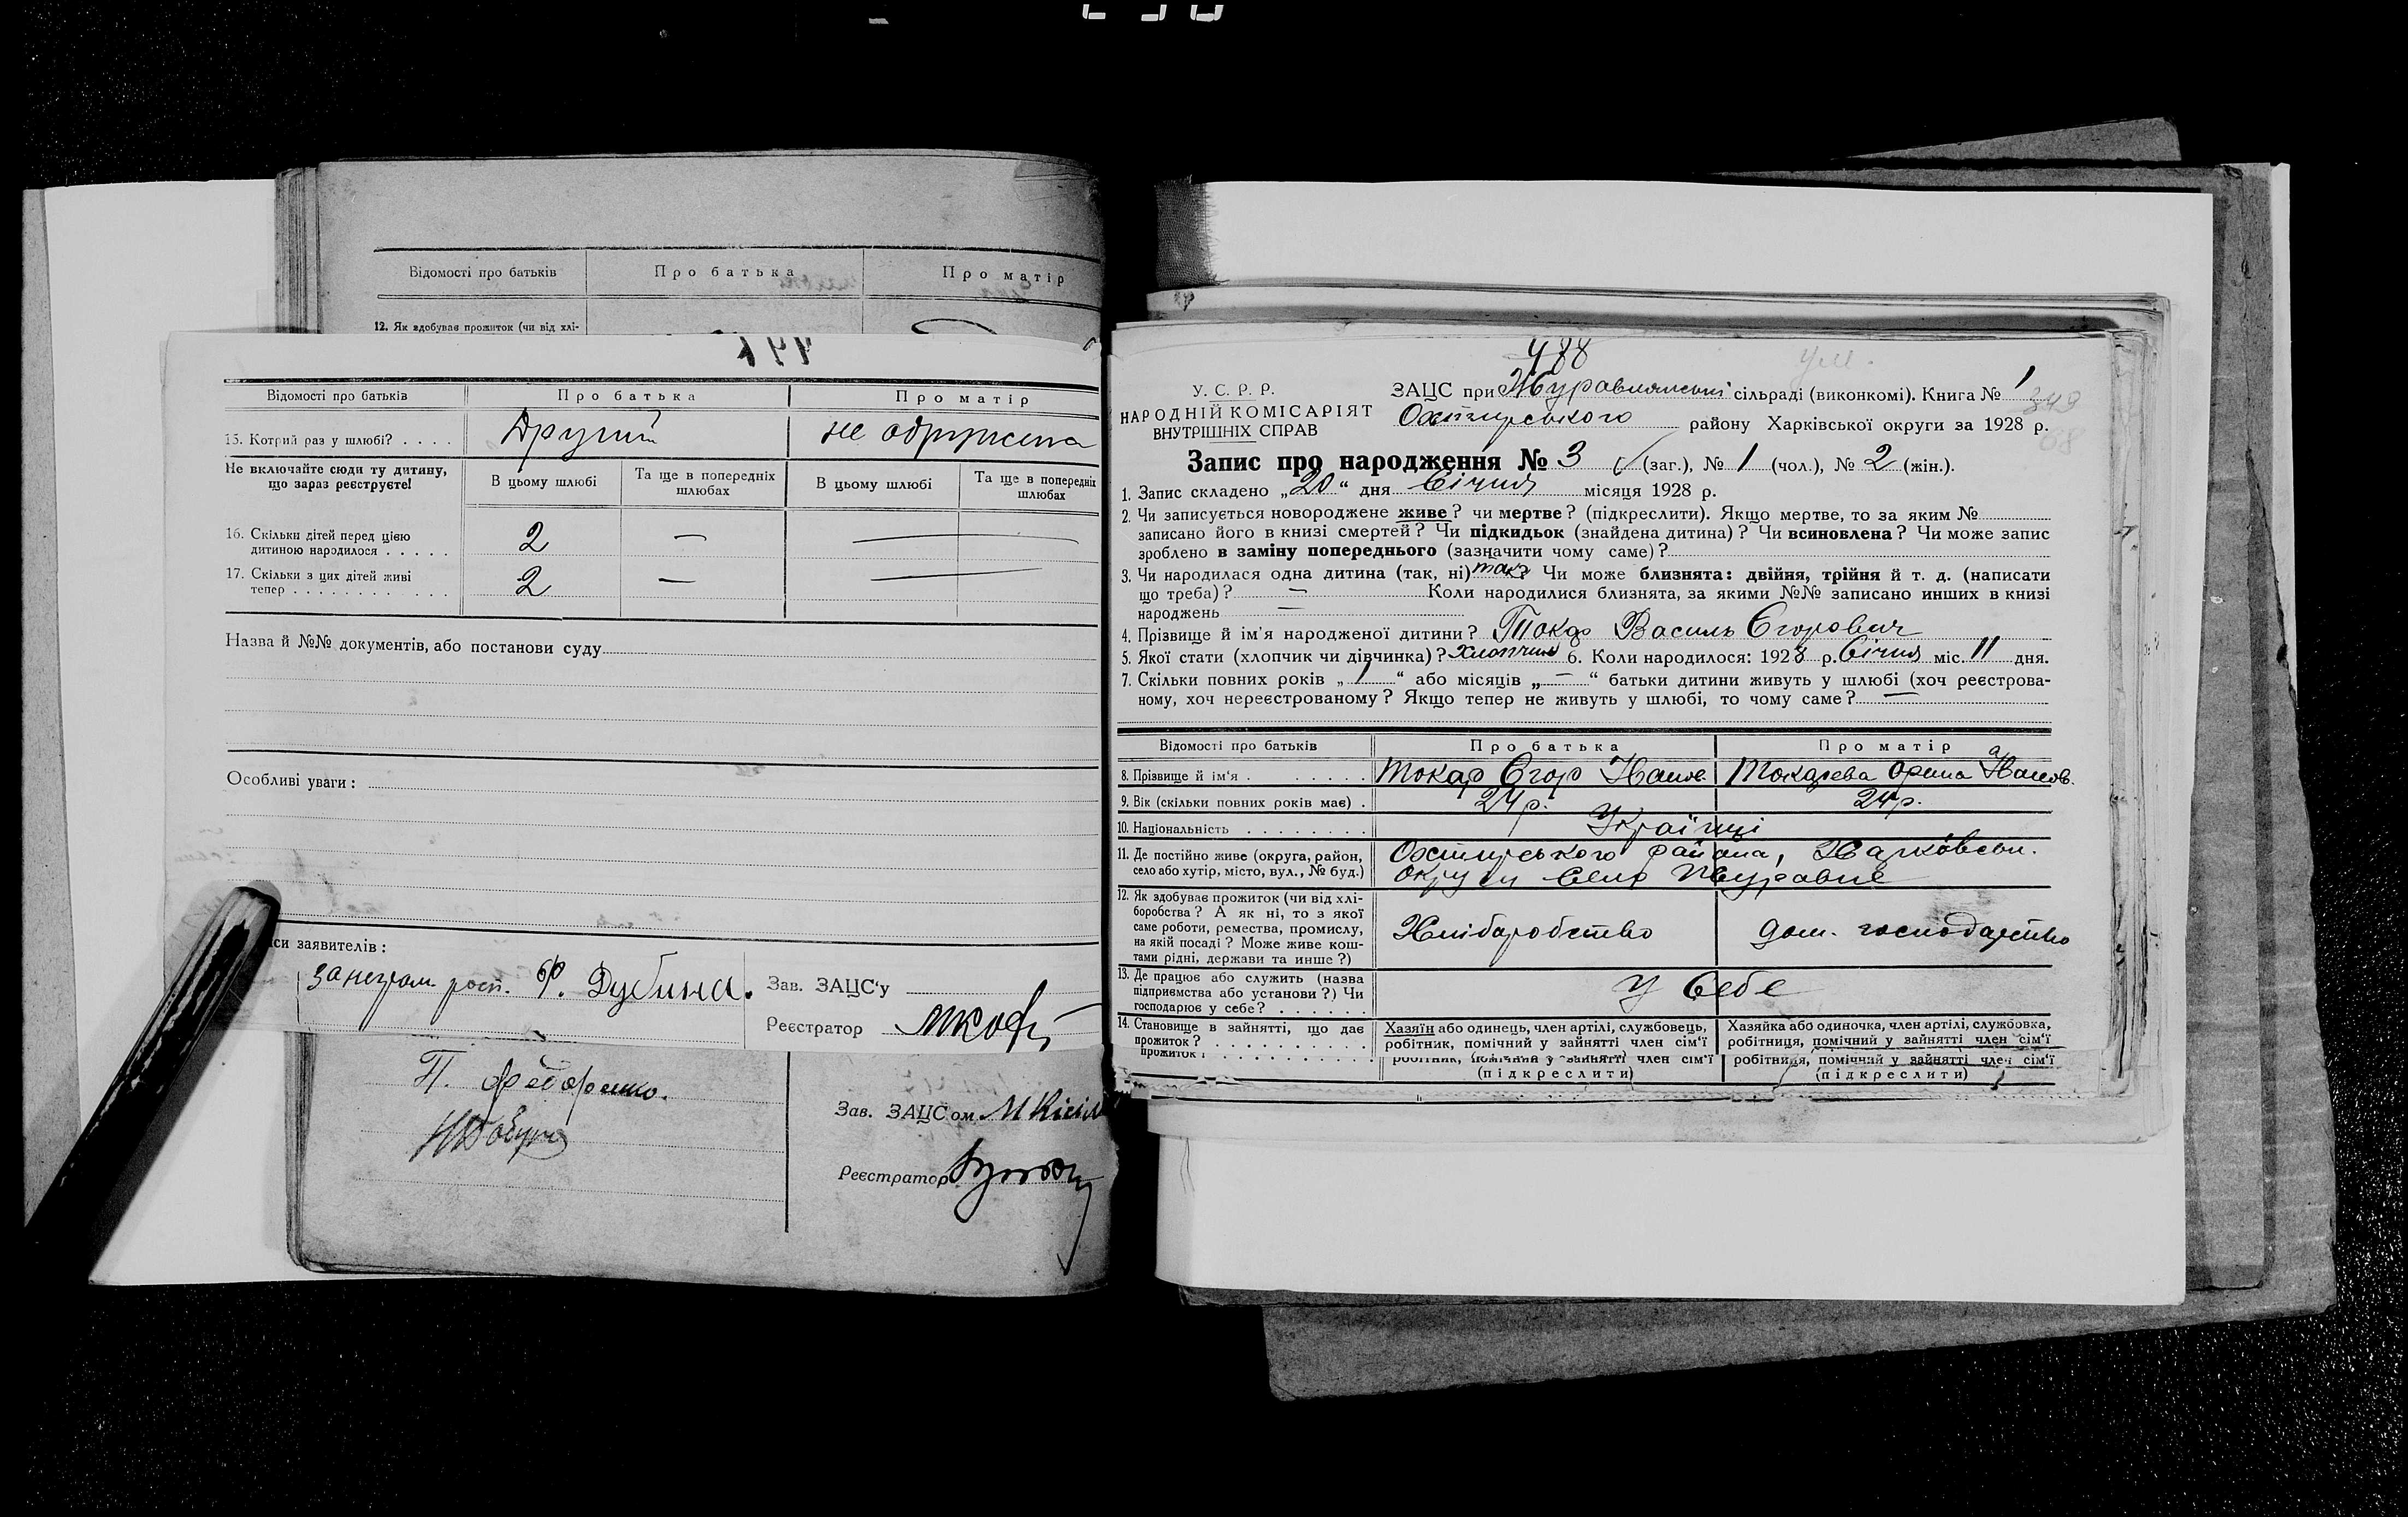 Відомості про батьків Про батька Про матір
12. Як здобуває прожиток (чи від хлі-
Відомості про батьків Про батька Про матір
15. Котрий раз у шлюбі? . . . . Другий не одружена
Не включайте сюди ту дитину, що зараз реєструєте!
В цьому шлюбі Та ще в попередніх шлюбах В цьому шлюбі Та ще в попередніх шлюбах
16. Скільки дітей перед цією
дитиною народилося . . . . . 2 — —
17. Скільки з цих дітей живі
тепер . . . . . . . . . . . . 2 — —
Назва й №№ документів, або постанови суду
Особливі уваги :
си заявителів :
за неграм. росп. Ф. Дубина.
Зав. ЗАЦС'у
Реєстратор
П. Федоренко.
Зав. ЗАЦСом
Реєстратор
488
У. С. Р. Р.
НАРОДНІЙ КОМІСАРІЯТ
ВНУТРІШНІХ СПРАВ
ЗАЦС при Журавлянській сільраді (виконкомі). Книга № 1
349
Охтирського району Харківської округи за 1928 р.
68
Запис про народження № 3 (заг.), № 1 (чол.), № 2 (жін.).
1. Запис складено „20“ дня Січня місяця 1928 р.
2. Чи записується новороджене живе? чи мертве? (підкреслити). Якщо мертве, то за яким №
записано його в книзі смертей? Чи підкидьок (знайдена дитина)? Чи всиновлена? Чи може запис
зроблено в заміну попереднього (зазначити чому саме)?
3. Чи народилася одна дитина (так, ні) так? Чи може близнята: двійня, трійня й т. д. (написати
що треба)? — Коли народилися близнята, за якими №№ записано инших в книзі
народжень —
4. Прізвище й ім'я народженої дитини? Токар Василь Єгорович
5. Якої стати (хлопчик чи дівчинка)? Хлопчик 6. Коли народилося: 1928 р. Січня міс. 11 дня.
7. Скільки повних років „1“ або місяців „—“ батьки дитини живуть у шлюбі (хоч реєстрова-
ному, хоч нереєстрованому? Якщо тепер не живуть у шлюбі, то чому саме? —
Відомості про батьків Про батька Про матір
8. Прізвище й ім'я . . . . . . . Токар Єгор Иванов. Токарева Орина Иванов.
9. Вік (скільки повних років має) . 24 р. 24 р.
10. Національність . . . . . . . . Українці
11. Де постійно живе (округа, район, Охтирського района, Харковськ.
село або хутір, місто, вул., № буд.) округи село Журавне
12. Як здобуває прожиток (чи від хлі-
боробства? А як ні, то з якої
саме роботи, ремества, промислу,
на якій посаді? Може живе кош-
тами рідні, держави та инше?)
Хліборобство дом. господарство
13. Де працює або служить (назва
підприємства або установи?) Чи
господарює у себе? . . . . . .
у себе
14. Становище в зайнятті, що дає
прожиток? . . . . . . . . . .
Хазяїн або одинець, член артілі, службовець,
робітник, помічний у зайнятті член сім'ї
Хазяйка або одиночка, член артілі, службовка,
робітниця, помічний у зайнятті член сім'ї
прожиток? . . . . . . . . . .
робітник, помічний у зайнятті член сім'ї
(підкреслити)
робітниця, помічний у зайнятті член сім'ї
(підкреслити)